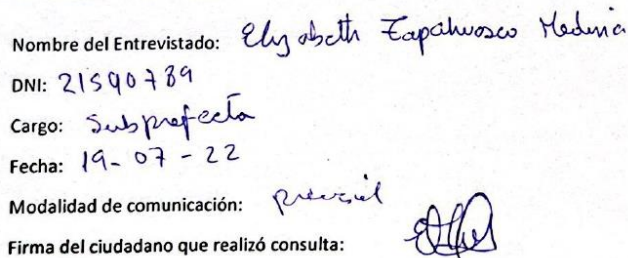 Nombre del Entrevistado: Elizabeth Medina
DNI: 21590789
Cargo: Subprefecta
Fecha: 19-07-22
Modalidad de comunicación:
Firma del ciudadano que realizó consulta: